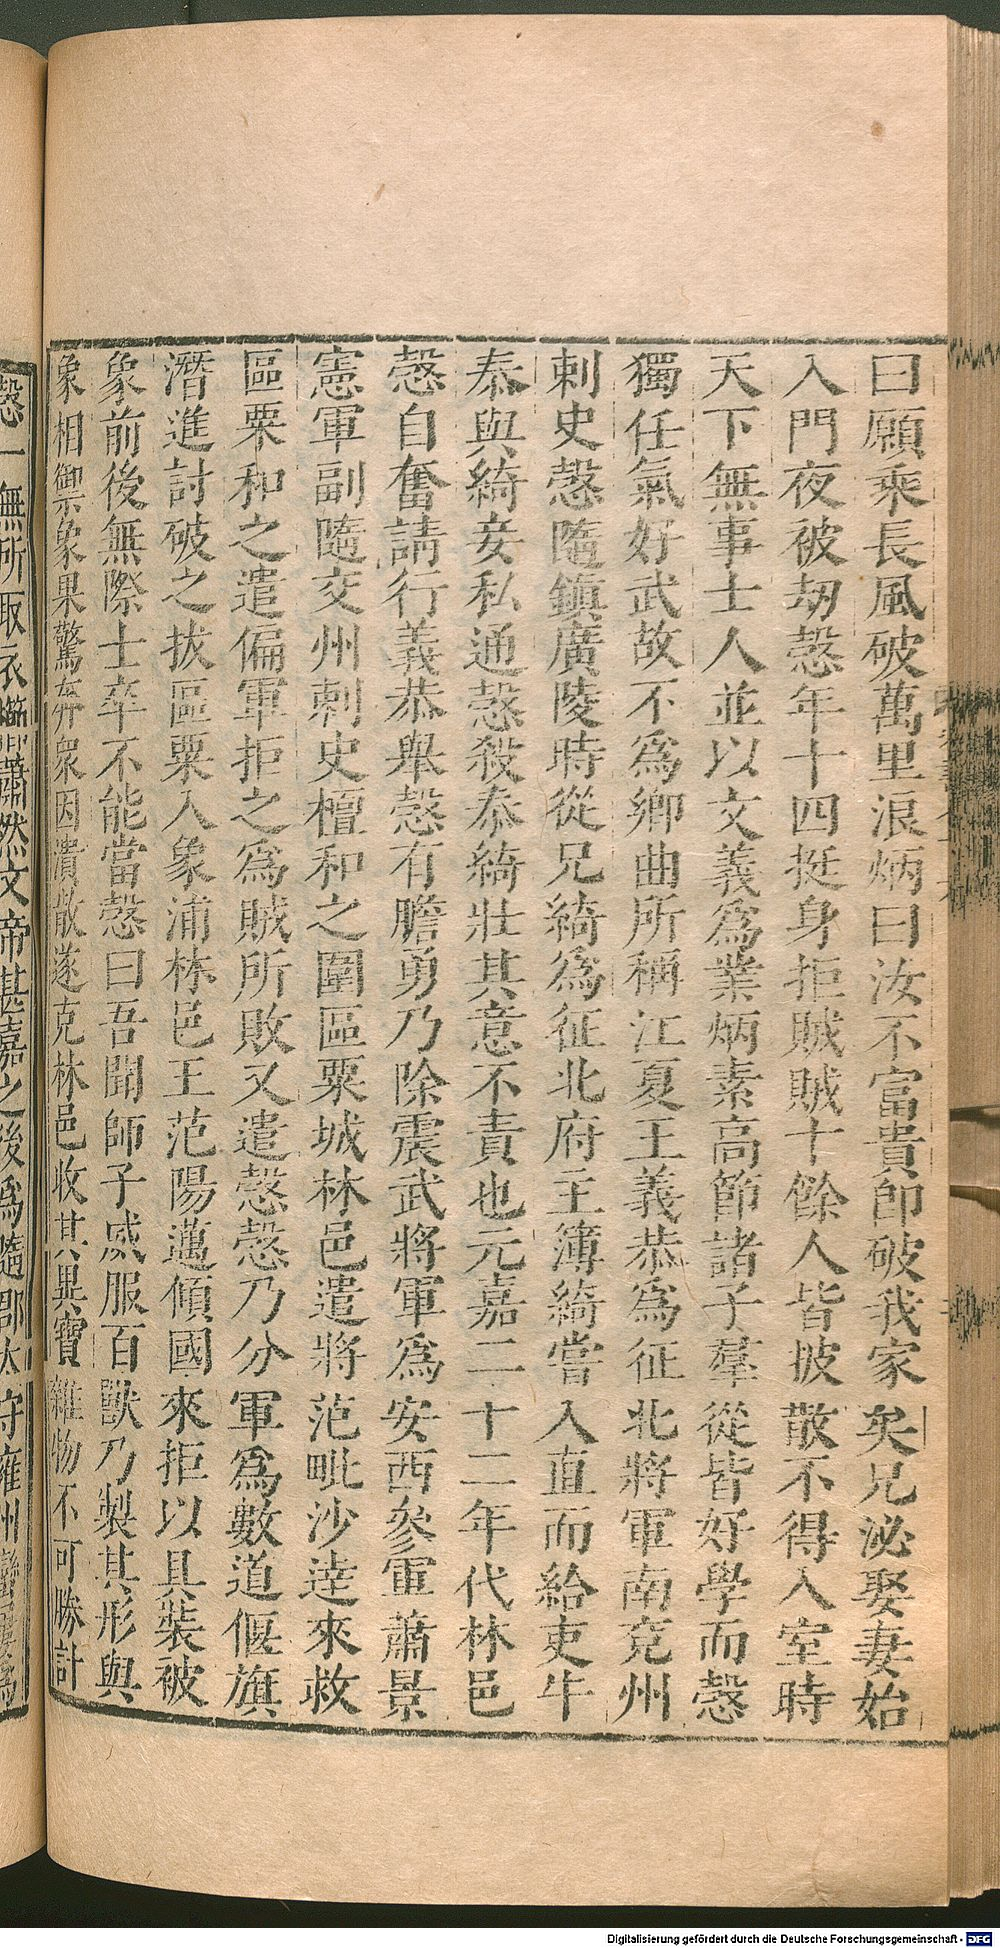 曰願乘長風破萬里浪炳曰汝不富貴卽破我家矣兄泌娶妻始
入門夜被劫愨年十四挺身拒賊賊十餘人皆披散不得入室時
天下無事士人並以文義爲業炳素高節諸子羣從皆好學而愨
獨任氣好武故不爲鄉曲所稱江夏王義恭爲征北將軍南兗州
刺史愨隨鎮廣陵時從兄綺爲征北府主簿綺嘗入直而給吏牛
泰與綺妾私通愨殺泰綺壯其意不責也元嘉二十二年代林邑
愨自奮請行義恭舉愨有膽勇乃除震武將軍爲安西參軍蕭景
憲軍副隨交州刺史檀和之圍區粟城林邑遣將范毗沙逹來救
區粟和之遣偏軍拒之爲賊所敗又遣愨愨乃分軍爲數道偃旗
潛進討破之拔區粟入象浦林邑王范陽邁傾國來拒以具裝被
象前後無際士卒不能當愨曰吾聞師子威服百獸乃製其形與
象相禦象果驚奔衆因潰散遂克林邑收其異寶雜物不可勝計
愨一無所取衣櫛蕭然文帝甚嘉之後爲隨郡太守雍州蠻屢爲
Digitalisierung gefördert durch die Deutsche Forschungsgemeinschaft - DFG